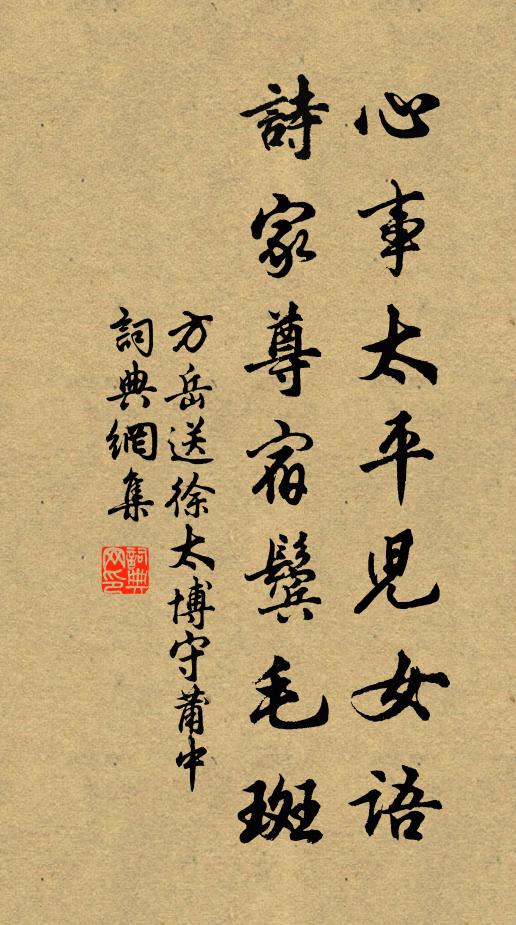 心事太平児女語
詩家尊宿鬓毛斑
方岳送徐太博守莆中
詞典網集
詞典
网印